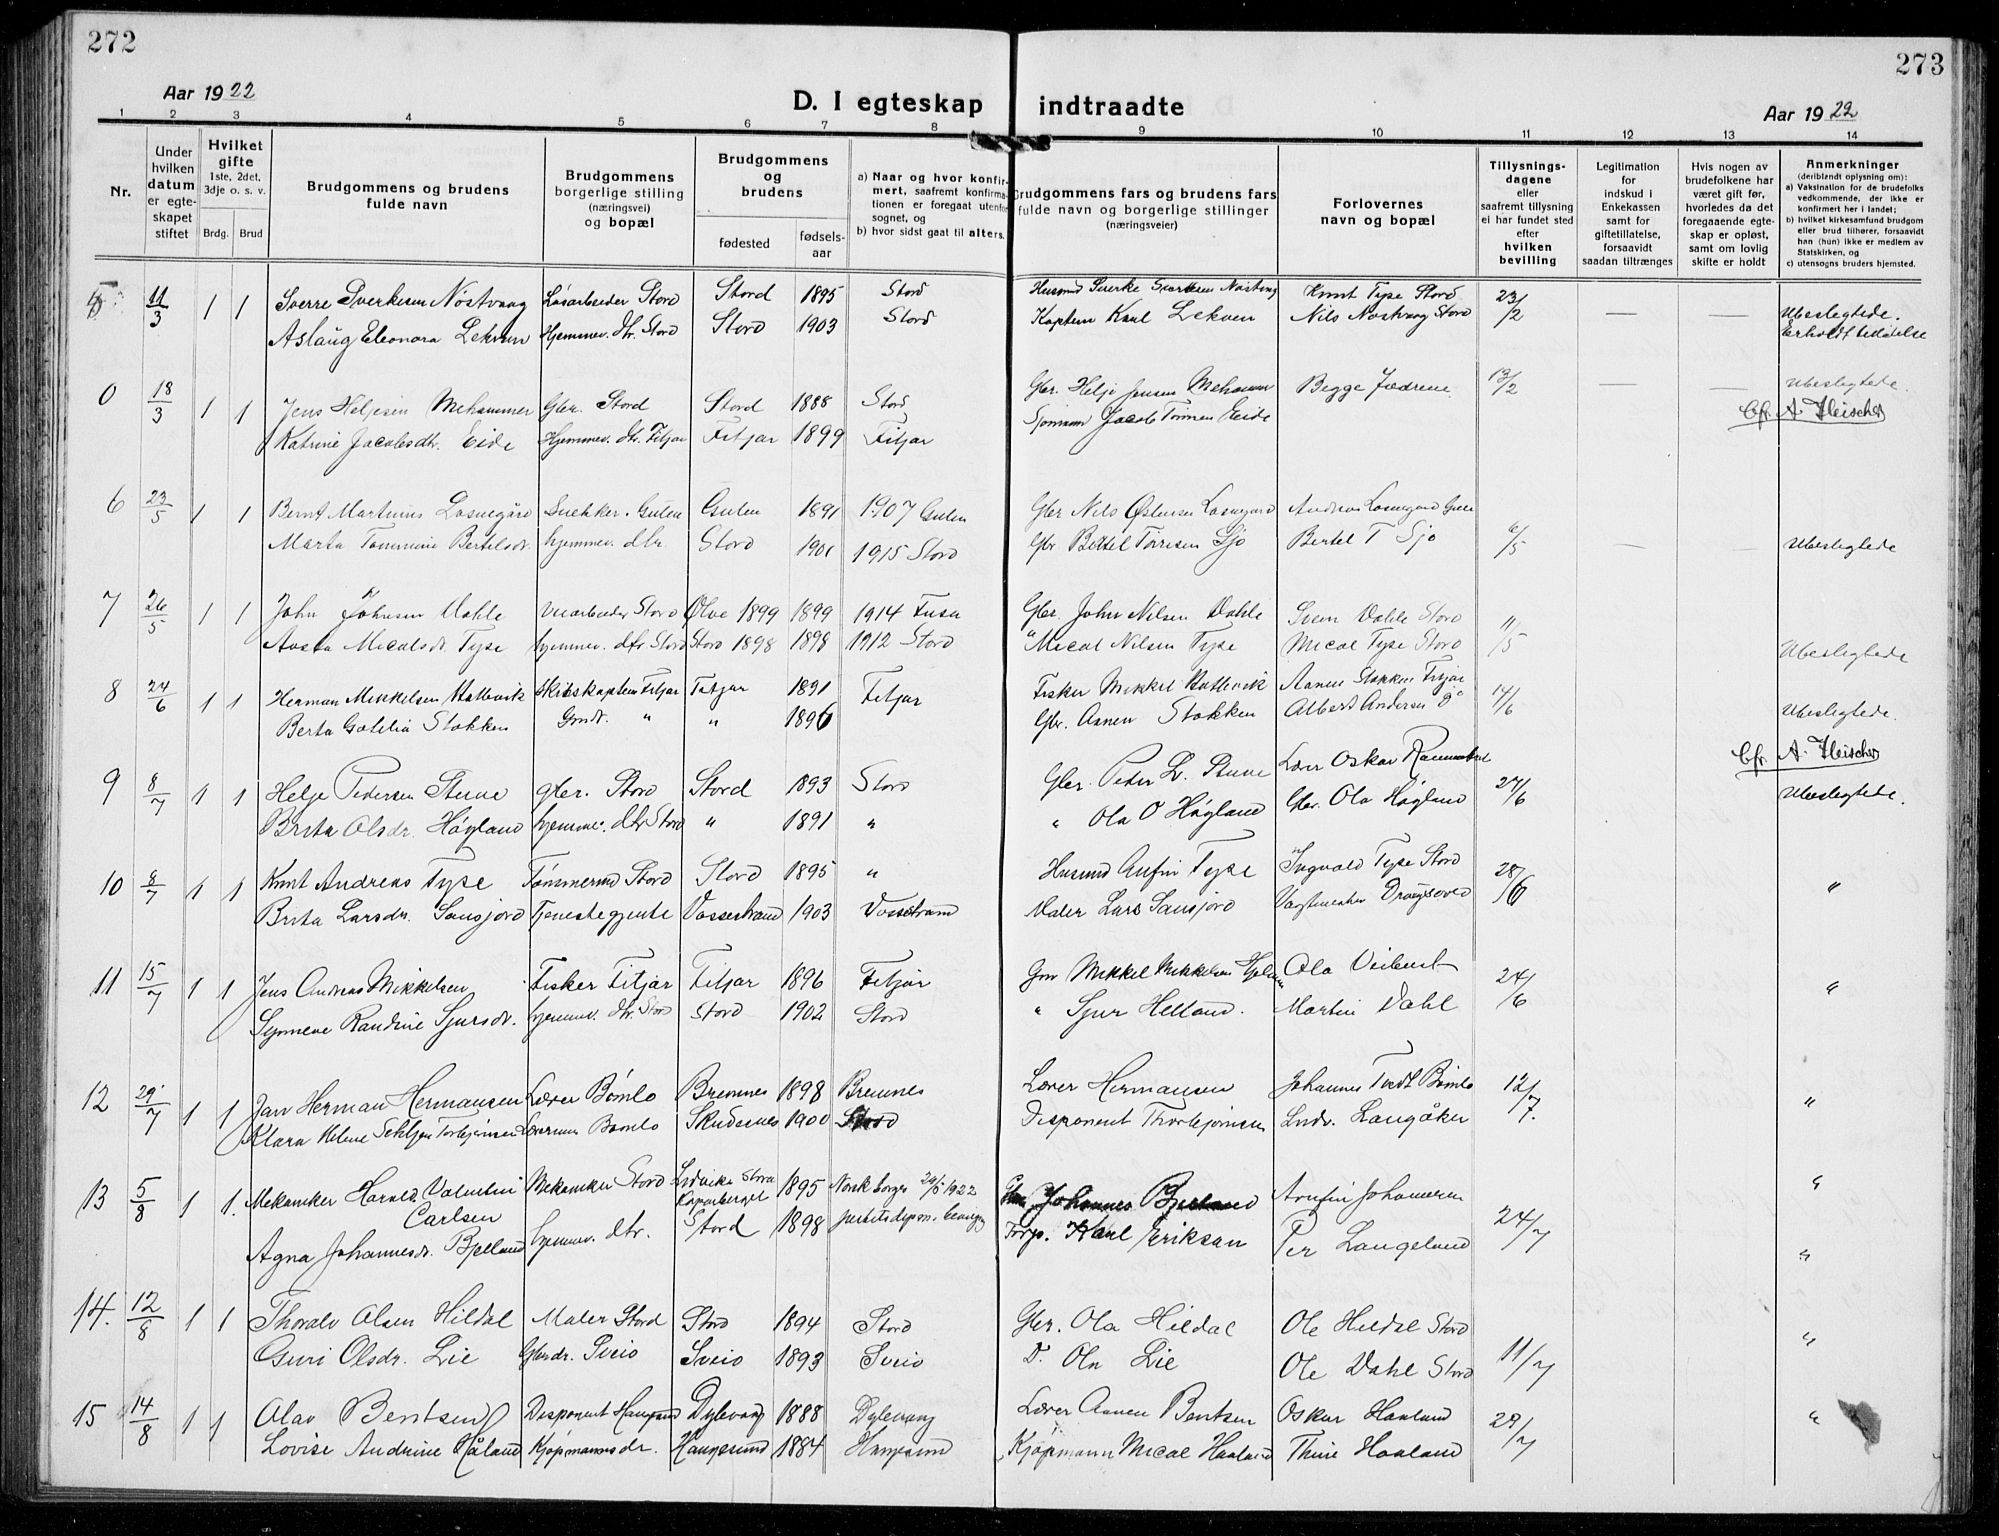 272
273
Aar 1922
D. I egteskap indtraadte
Aar 1922
1 2 3 4 5 6 7 8 9 10 11 12 13 14
Nr.
Under hvilken datum er egteskapet stiftet
Hvilket gifte 1ste, 2det, 3dje o. s. v.
Brdg. Brud
Brudgommens og brudens fulde navn
Brudgommens borgerlige stilling (næringsvei) og bopæl
Brudgommens og brudens
fødested
fødselsaar
a) Naar og hvor konfirmert, saafremt konfirmationen er foregaat utenfor sognet, og
b) hvor sidst gaat til alters.
Brudgommens fars og brudens fars fulde navn og borgerlige stillinger (næringsveier)
Forlovernes navn og bopæl
Tillysningsdagene eller saafremt tillysning ei har fundet sted efter hvilken bevilling
Legitimation for indskud i Enkekassen samt for giftetillatelse, forsaavidt saadan tiltrænges
Hvis nogen av brudefolkene har været gift før, hvorledes da det foregaaende egteskap er opløst, samt om lovlig skifte er holdt
Anmerkninger (deriblandt oplysning om):
a) Vaksination for de brudefolks vedkommende, der ikke er konfirmert her i landet;
b) hvilket kirkesamfund brudgom eller brud tilhører, forsaavidt han (hun) ikke er medlem av Statskirken, og
c) utensogns bruders hjemsted.
11/3 1 1 Sverre Sverkesen Nóstvaag Lósarbeider Stord Stord 1895 Stord Husmd Nils Nostvaag Stord 23/2 — — Ubeslegtede.
Aslaug Eleonora Lekven Hjemmev. dtr. Stord Stord 1903 Stord Kaptein Karl Lekven Knut Tyse Stord
0 18/3 1 1 Jens Heljesen Mehammer Gbr. Stord Stord 1888 Stord Gbr. Helje Jensen Mehammer Begge Fædrene 13/2 — — Ubeslegtede.
Katrine Jacobsdtr. Eide Hjemmev. dtr. Fitjar Fitjar 1899 Fitjar Sjømann Jacob Eide Cfr. A. Fleischer
6 23/5 1 1 Bernt Martinius Losnegård Gulen Gulen 1891 1907 Gulen Gbr Nils Østensen Losnegård Andreas Losnegård
Marta Tommine Bertelsdr. hjemmev. dtr. Stord 1901 1915 Stord Gbr Bertel Torresen Sjo Bertel T Sjo 6/5 — — Ubeslegtede
7 26/5 1 1 John Johnsen Dahle Stord Ølve 1899 1899 1914 Fusa Gbr. John Nilsen Dahle Sven Dahle Stord 11/5
Micalsdr. Tyse hjemmev. dtr Stord Stord 1898 1898 1912 Stord " Mical Nilsen Tyse Mical Tyse Stord Ubeslegtede
8 24/6 1 1 Herman Mikkelsen Hattevik Skibskaptein Fitjar Fitjar 1891 Fitjar Fisker Mikkel Hattevik Aanen Stokken Fitjar 14/6
Berta Gotilia Stokken Gmdr. " " 1896 Gbr. Aanen Stokken Albert Andersen Ubeslegtede.
Cfr. A. Fleischer
9 8/7 1 1 Helje Pedersen Stuve gbr. Stord Stord 1893 Stord Gbr. Peder L. Stuve Lærer Oskar 27/6 Ubeslegtede.
Brita Olsdr. Høyland hjemmev. dtr Stord " 1891 " " Ola O Høyland Gbr. Ola Høyland
10 8/7 1 1 Knut Andreas Tyse Tømmermd Stord Stord 1895 " Husmd Anfin Tyse Ingvald Tyse Stord 28/6 "
Brita Larsdr. Tjenestegjente Vossestrand 1903 Vossestrand Maler Lars
11 15/7 1 1 Jens Andreas Mikkelsen Fisker Fitjar Fitjar 1896 Fitjar Mikkel Mikkelsen Ola 24/6 "
Synneve Randine Sjursdr. hjemmev. dtr. Stord Stord 1902 Stord " Sjur Helland. Martin Dahl
12 29/7 1 1 Jan Herman Hermansen Lærer Bómlo Bremnes 1898 Bremnes Lærer Hermansen Johannes Tvedt Bómlo 12/7. "
Klara Helene Torbjørnsen Lærerinne Bomlo Skudesnes 1900 Stord Disponent Thorbjørnsen Langåker
13 5/8 1 1. Mekaniker Harald Valentin Carlsen Mekaniker Stord Kopparberget 1895 Norsk borger 29/5 1922 Johannes Bjelland Johannesen 24/7 "
Agna Johannesdr. Bjelland hjemmev. dtr. Stord 1898 Karl Eriksan Per Langeland "
14. 12/8 1 1 Thoralv Olsen Hildal Maler Stord Stord 1894 Stord Gbr. Ola Hildal Ole Hildal Stord 11/7 "
Guri Olsdr. Lie Gbrdr. Sveio Sveio 1893 Sveio D. Ola Lie Ole Dahl Stord
15 14/8 1 1 Olav Bentsen Disponent Haugesund 1888 Lærer Aanen Bentsen Oskar Haaland 29/7 "
Lovise Andrine Håland Kjøpmannsdr. Haugesund 1884 Haugesund Kjøpmann Mical Haaland Thine Haaland